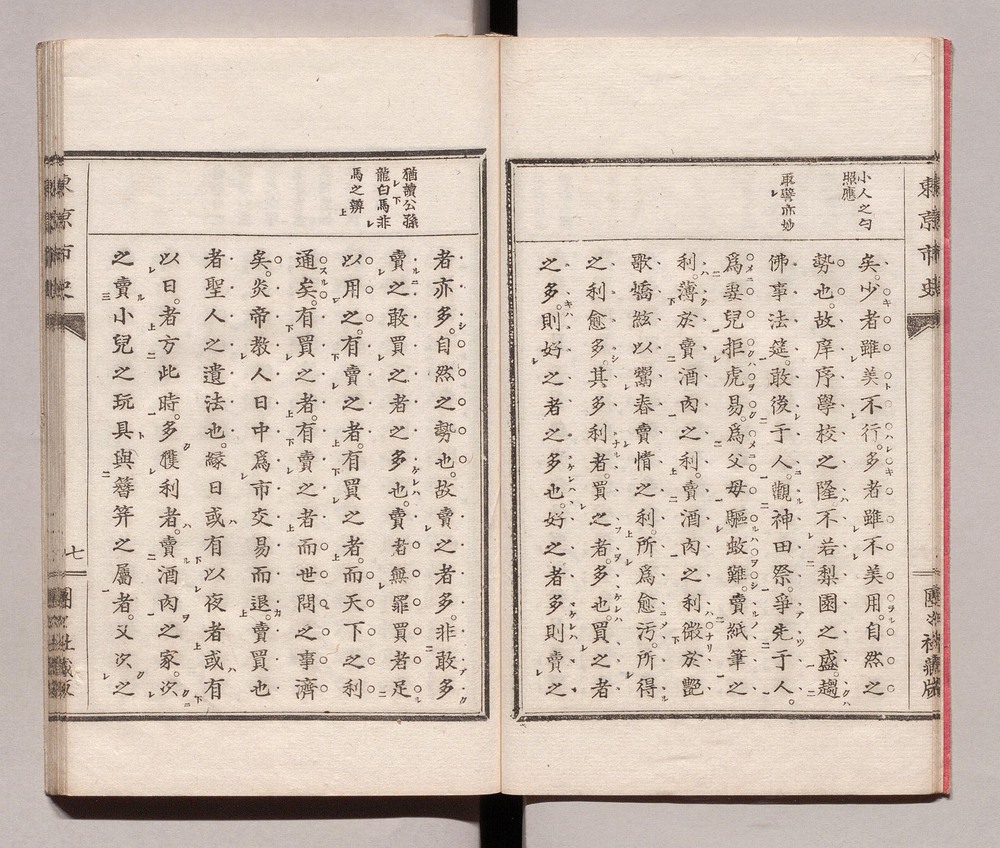 東京市史
團々社藏版
小人之句
照應
取譬亦妙
矣。少者雖美不行。多者雖不美用。自然之
勢也。故庠序學校之隆。不若梨園之盛。趨
佛事法筵。敢後于人。觀神田祭。爭先于人。
爲妻兒拒虎易。爲父母驅蚊難。賣紙筆之
利。薄於賣酒肉之利。賣酒肉之利微於艷
歌嬌絃以鬻春賣情之利。所爲愈汚。所得
之利愈多。其多利者。買之者。多也。買之者
之多。則好之者之多也。好之者多則賣之
猶讀公孫
龍白馬非
馬之辨
者亦多。自然之勢也。故賣之者多。非敢多
賣之。敢買之者之多也。賣者無罪。買者足
以用之。有賣之者。有買之者。而天下之利
通矣。有買之者。有賣之者。而世間之事濟
矣。炎帝教人日中爲市交易而退。賣買也
者聖人之遺法也。縁日或有以夜者或有
以日者。方此時。多獲利者。賣酒肉之家。次
之賣小兒之玩具與簪笄之屬者。又次之
東京市史
七
團々社藏版